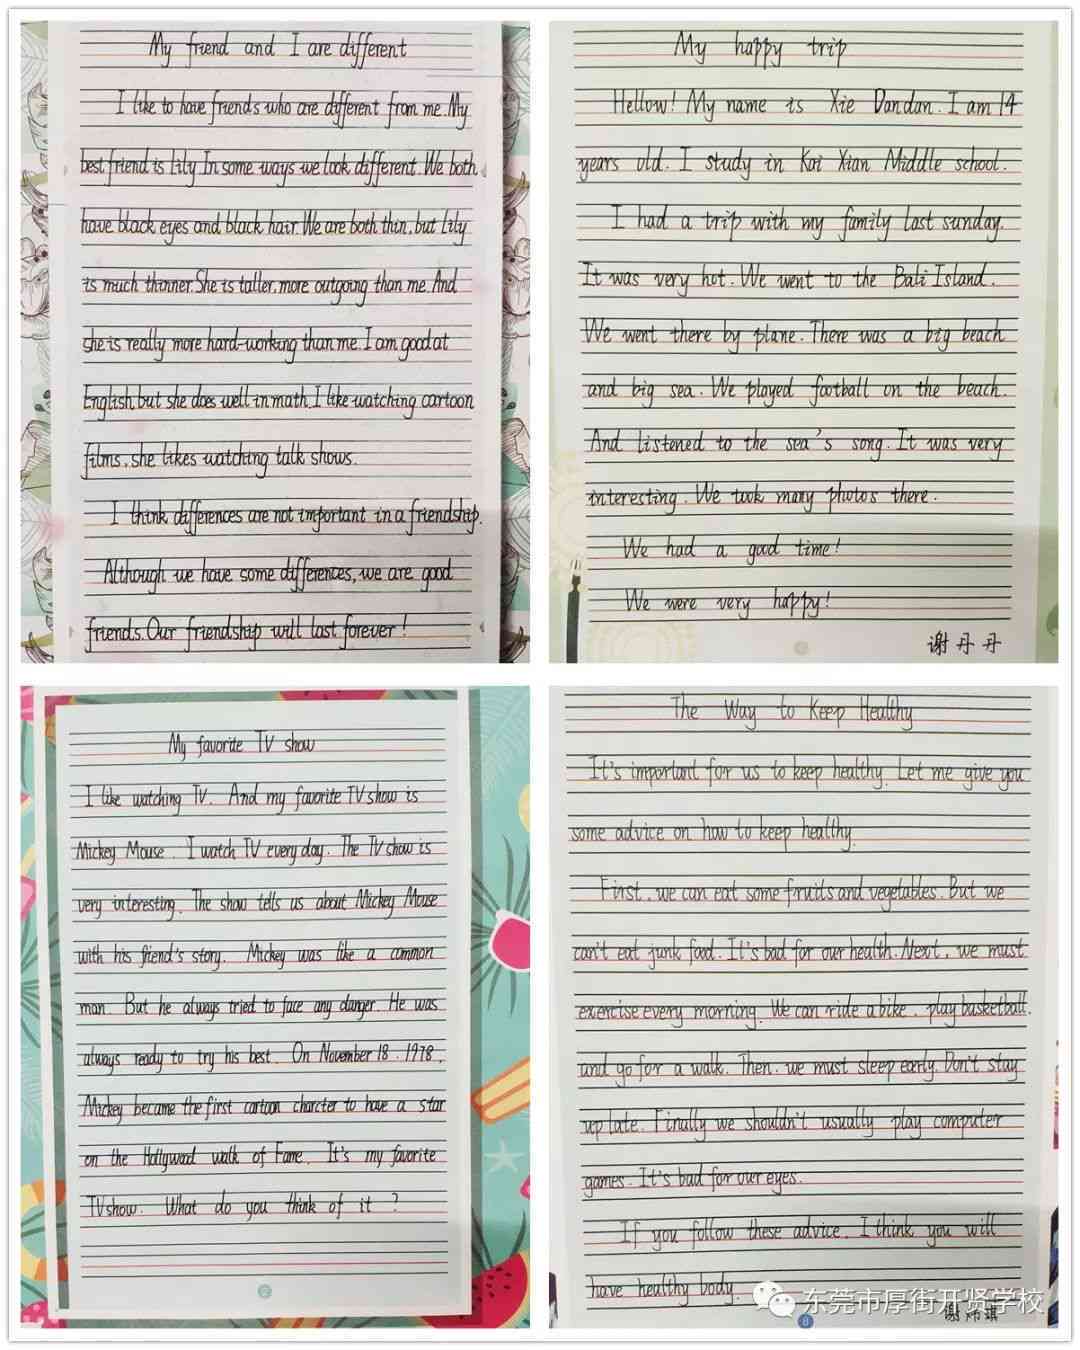 My friend and I are different
I like to have friends who are different from me. My
best friend is Lily In some ways we look different. We both
have black eyes and black hair. We are both thin, but Lily
is much thinner. She is taller, more outgoing than me. And
she is really more hard-working than me. I am good at
English, but she does well in math. I like watching cartoon
films, she likes watching talk shows.
I think differences are not important in a friendship.
Although we have some differences, we are good
friends. Our friendship will last forever!
My happy trip
Hellow! My name is Xie Dandan. I am 14
years old. I study in Kai Xian Middle school.
I had a trip with my family last sunday.
It was very hot. We went to the Bali Island.
We went there by plane. There was a big beach
and big sea. We played football on the beach.
And listened to the sea's song. It was very
interesting. We took many photos there.
We had a good time!
We were very happy!
谢丹丹
My favorite TV show
I like watching TV. And my favorite TV show is
Mickey Mouse. I watch TV every day. The TV show is
very interesting. The show tells us about Mickey Mouse
with his friend's story. Mickey was like a common
man. But he always tried to face any danger. He was
always ready to try his best. On November 18, 1978,
Mickey became the first cartoon charcter to have a star
on the Hollywood walk of Fame. It's my favorite
TV show. What do you think of it?
The Way to Keep Healthy
It's important for us to keep healthy. Let me give you
some advice on how to keep healthy.
First, we can eat some fruits and vegetables. But we
can't eat junk food. It's bad for our health. Next, we must
exercise every morning. We can ride a bike, play basketball.
and go for a walk. Then, we must sleep early. Don't stay
up late. Finally we shouldn't usually play computer
games. It's bad for our eyes.
If you follow these advice, I think you will
have healthy body.
东莞市厚街开贤学校
8